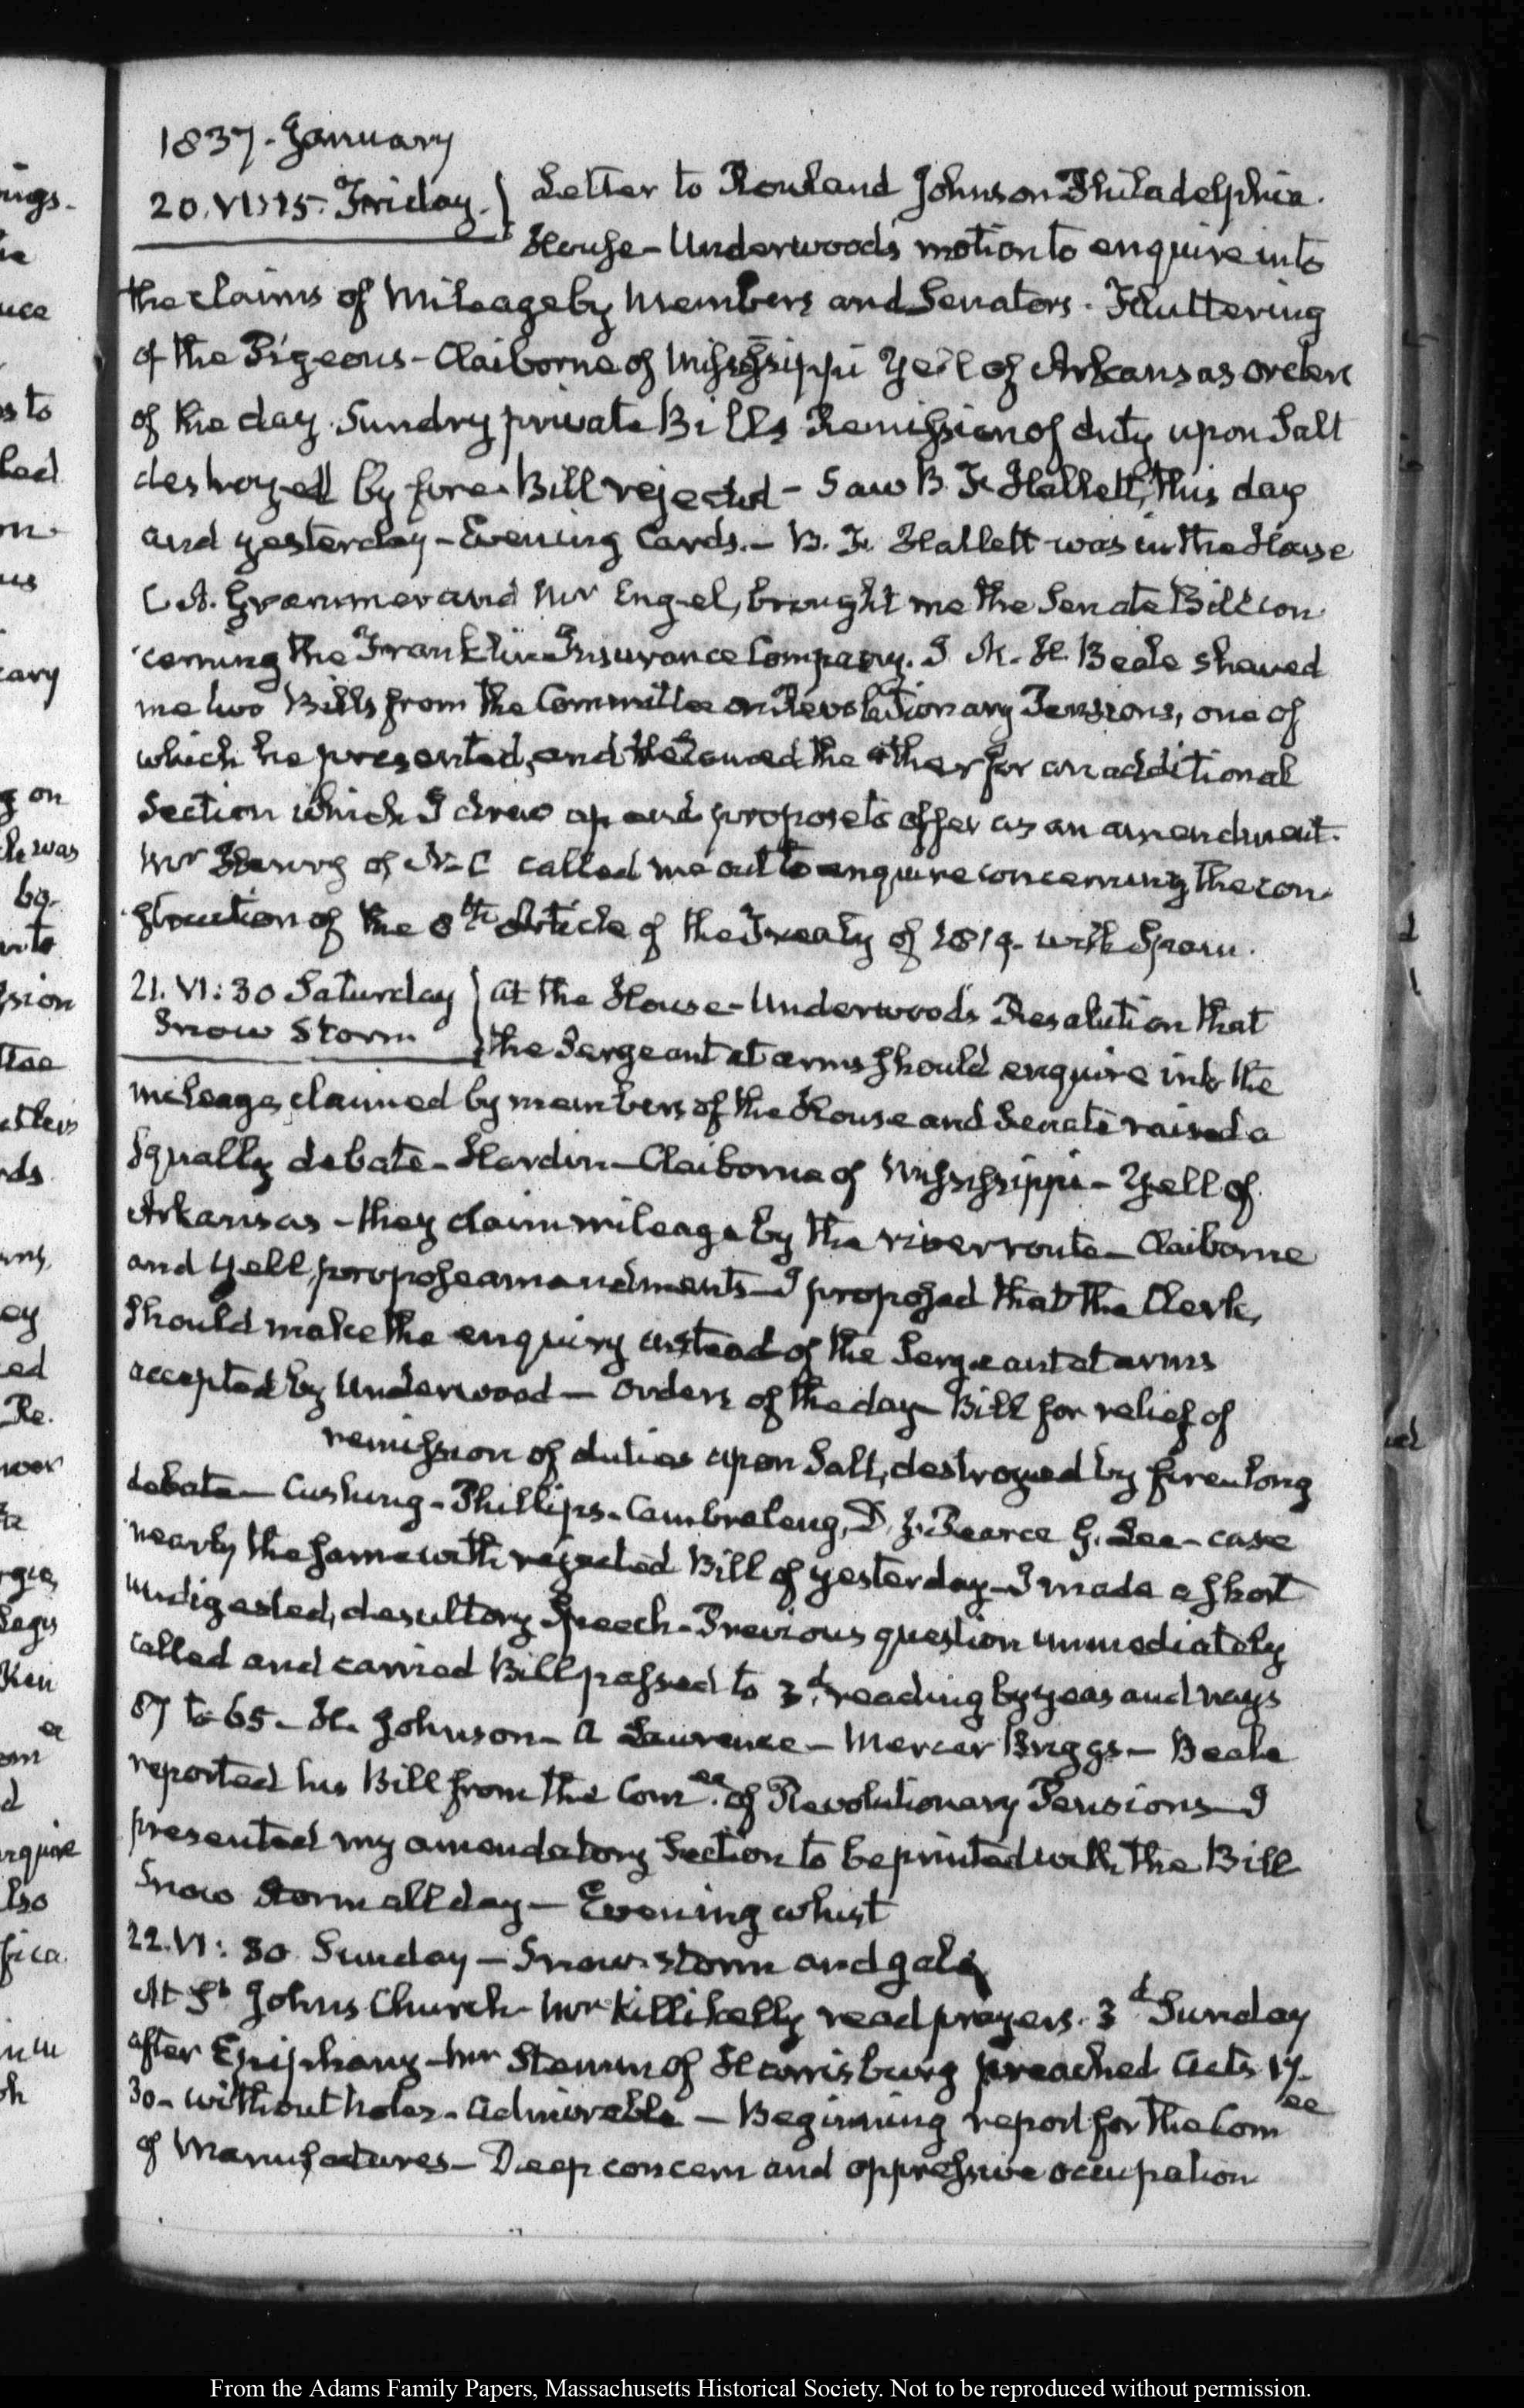 1837. January
20. VI:15. Friday. Letter to Rowland Johnson Philadelphia.
House – Underwood's motion to enquire into
the claims of Mileage by Members and Senators. Fluttering
of the Pigeons – Claiborne of Mississippi Yell of Arkansas orders
of the day. Sundry private Bills Remission of duty upon Salt
destroyed by fire. Bill rejected – Saw B. F. Hallett, this day
and yesterday – Evening Cards. – B. F. Hallett was in the House
Grammer and Mr Engel, brought me the Senate Bill con-
cerning the Franklin Insurance Company. Beale shewed
me two Bills from the Committee on Revolutionary Pensions, one of
which he presented, and the other for an additional
Section which I drew up and propose to offer as an amendment.
Mr of N-C called me out to enquire concerning the con-
struction of the 8th Article of the Treaty of 1819. with Spain.
21. VI:30 Saturday At the House – Underwood's Resolution that
Snow Storm the Sergeant at arms should enquire into the
mileage, claimed by members of the House and Senate raised a
squally debate – Hardin – Claiborne of Mississippi – Yell of
Arkansas – they claim mileage by the river route – Claiborne
and Yell, propose amendments – I proposed that the Clerk,
should make the enquiry instead of the Sergeant at arms
accepted by Underwood – Orders of the day – Bill for relief of
remission of duties upon Salt, destroyed by fire – long
debate – Cushing – Phillips – Cambreleng, D. J. Pearce G. Lee – case
nearly the same with rejected Bill of yesterday – I made a short
undigested, desultory Speech – Previous question immediately
called and carried Bill passed to 3d. reading by yeas and nays
87 to 65 – H. Johnson – A Lawrence – Mercer Briggs – Beale
reported his Bill from the Comee. of Revolutionary Pensions – I
presented my amendatory Section to be printed with the Bill
Snow storm all day – Evening whist
22. VI:30. Sunday – Snow-storm and gale
At St Johns Church – Mr Killikelly read prayers. 3d Sunday
after Epiphany – Mr of Harrisburg preached Acts 17.
30 – without notes – Admirable – Beginning report for the Comee
of Manufactures – Deep concern and oppressive occupation
From the Adams Family Papers, Massachusetts Historical Society. Not to be reproduced without permission.